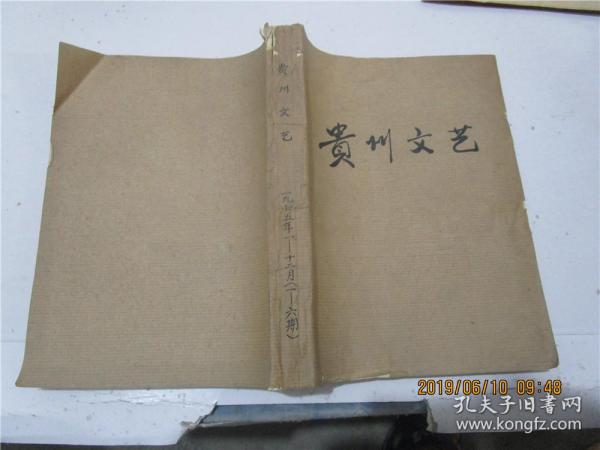 贵州文艺
一九七五年一—十二月(一—六期)
貴州文艺
2019/06/10 09:48
孔夫子旧书网
www.kongfz.com